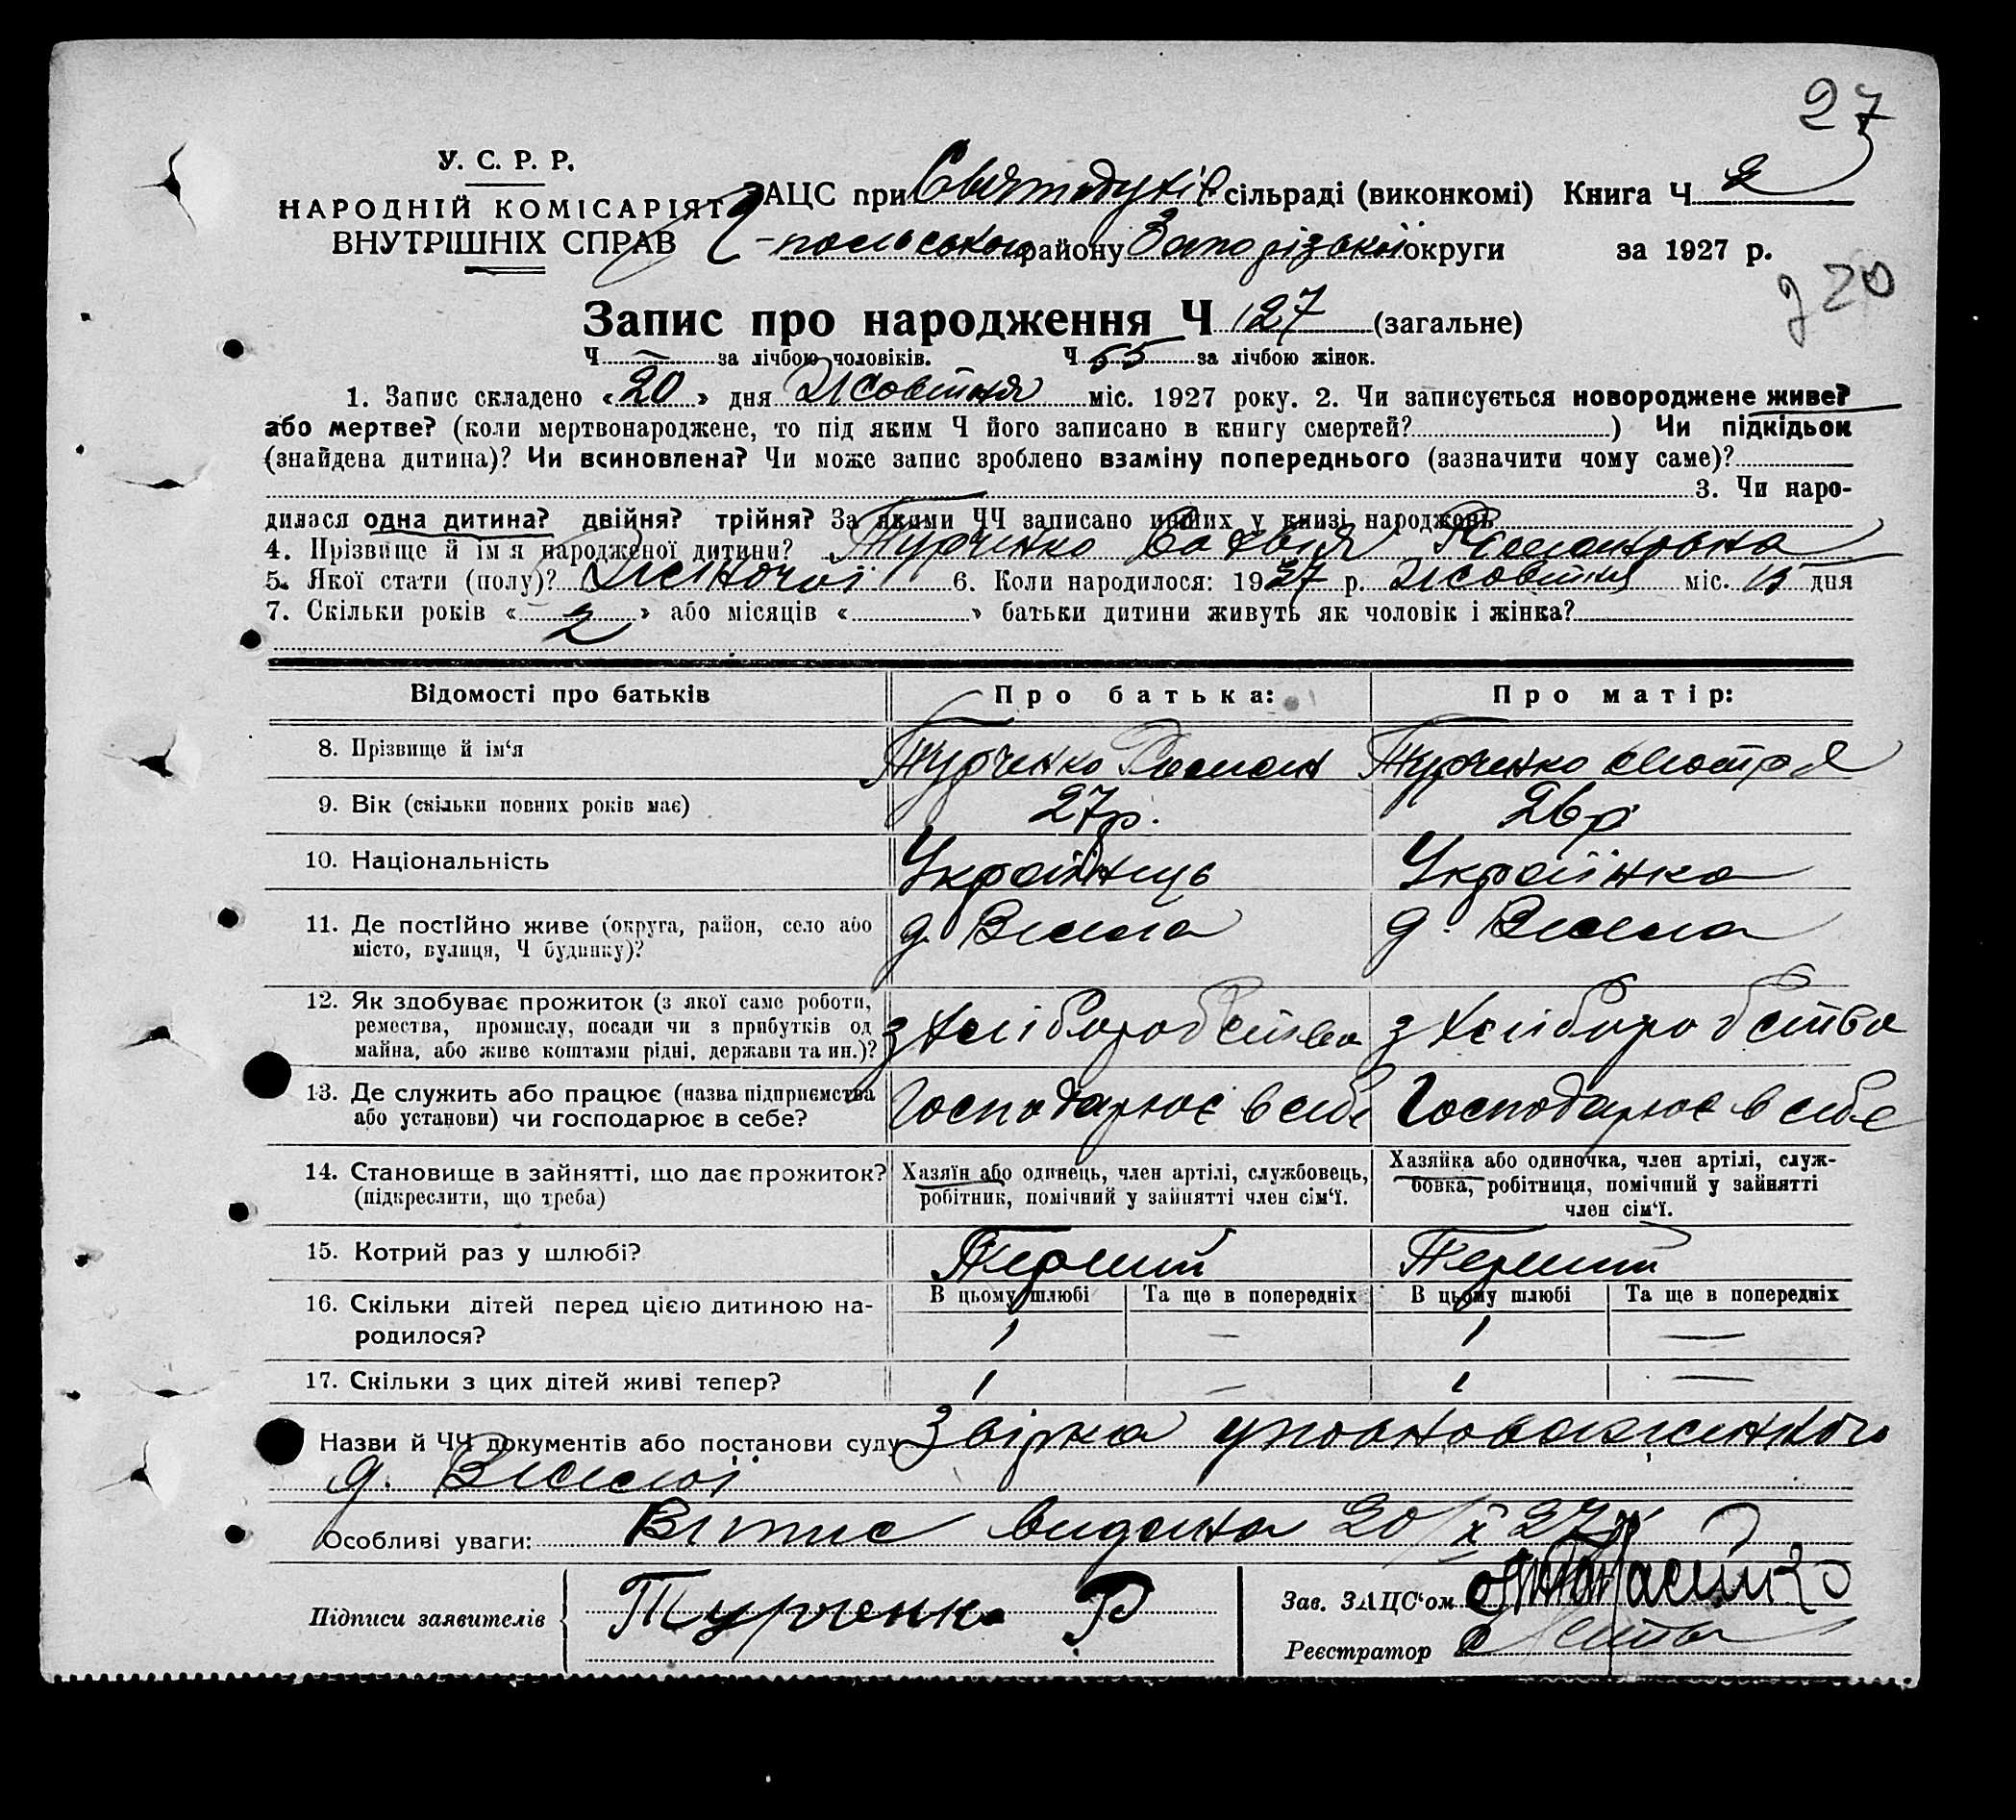 27
У. С. Р. Р.
НАРОДНІЙ КОМІСАРІЯТ
ВНУТРІШНІХ СПРАВ
ЗАЦС при Святодухів сільраді (виконкомі) Книга Ч 2
-польського району Запорізької округи за 1927 р.
Запис про народження Ч 127 (загальне)
Ч — за лічбою чоловіків. Ч 55 за лічбою жінок.
1. Запис складено «20» дня Жовтня міс. 1927 року. 2. Чи записується новороджене живе?
або мертве? (коли мертвонароджене, то під яким Ч його записано в книгу смертей?) Чи підкідьок
(знайдена дитина)? Чи всиновлена? Чи може запис зроблено взаміну попереднього (зазначити чому саме)?
3. Чи наро-
дилася одна дитина? двійня? трійня? За якими ЧЧ записано инших у книзі народжень
4. Прізвище й ім'я народженої дитини? Турченко Романовна
5. Якої стати (полу)? Жіночої 6. Коли народилося: 1927 р. Жовтня міс. 15 дня
7. Скільки років «2» або місяців « » батьки дитини живуть як чоловік і жінка?
Відомості про батьків Про батька: Про матір:
8. Прізвище й ім'я Турченко Роман Турченко
9. Вік (скільки повних років має) 27р. 26р
10. Національність Українець Українка
11. Де постійно живе (округа, район, село або
місто, вулиця, Ч будинку)?
12. Як здобуває прожиток (з якої само роботи,
ремества, промислу, посади чи з прибутків од
майна, або живе коштами рідні, держави та ин.)?
з хліборобства з хліборобства
13. Де служить або працює (назва підприємства
або установи) чи господарює в себе?
Господарює в себе Господарює в себе
14. Становище в зайнятті, що дає прожиток?
(підкреслити, що треба)
Хазяїн або одинець, член артілі, службовець,
робітник, помічний у зайнятті член сім'ї.
Хазяйка або одиночка, член артілі, служ-
бовка, робітниця, помічний у зайнятті
член сім'ї.
15. Котрий раз у шлюбі? Перший Перший
В цьому шлюбі Та ще в попередніх В цьому шлюбі Та ще в попередніх
16. Скільки дітей перед цією дитиною на-
родилося? 1 — 1 —
17. Скільки з цих дітей живі тепер? 1 — 1 —
Назви й ЧЧ документів або постанови суду Звірка уповноваженного
Особливі уваги: Витис видана 20/X 27р
Підписи заявителів Турченко Р
Зав. ЗАЦС'ом
Реєстратор